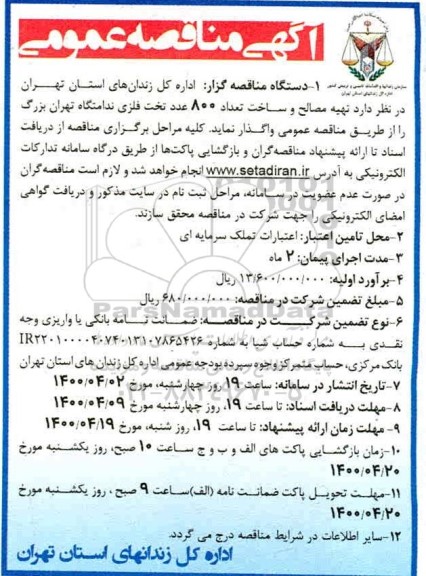 آگهی مناقصه عمومی
۱-دستگاه مناقصه گزار: اداره کل زندان‌های استان تهران
در نظر دارد تهیه مصالح و ساخت تعداد ۸۰۰ عدد تخت فلزی ندامتگاه تهران بزرگ
را از طریق مناقصه عمومی واگذار نماید. کلیه مراحل برگزاری مناقصه از دریافت
اسناد تا ارائه پیشنهاد مناقصه‌گران و بازگشایی پاکت‌ها از طریق درگاه سامانه تدارکات
الکترونیکی به آدرس www.setadiran.ir انجام خواهد شد و لازم است مناقصه‌گران
در صورت عدم عضویت در سامانه، مراحل ثبت نام در سایت مذکور و دریافت گواهی
امضای الکترونیکی را جهت شرکت در مناقصه محقق سازند.
۲-محل تامین اعتبار: اعتبارات تملک سرمایه ای
۳-مدت اجرای پیمان: ۲ ماه
۴-برآورد اولیه: ۱۳/۶۰۰/۰۰۰/۰۰۰ ریال
۵-مبلغ تضمین شرکت در مناقصه: ۶۸۰/۰۰۰/۰۰۰ ریال
۶-نوع تضمین شرکت در مناقصه: ضمانت نامه بانکی یا واریزی وجه
نقدی به شماره حساب شبا به شماره
بانک مرکزی، حساب متمرکز وجوه سپرده بودجه عمومی اداره کل زندان های استان تهران
۷-تاریخ انتشار در سامانه: ساعت ۱۹ روز چهارشنبه، مورخ ۱۴۰۰/۰۴/۰۲
۸-مهلت دریافت اسناد: تا ساعت ۱۹، روز چهارشنبه مورخ ۱۴۰۰/۰۴/۰۹
۹- مهلت زمان ارائه پیشنهاد: تا ساعت ۱۹، روز شنبه، مورخ ۱۴۰۰/۰۴/۱۹
۱۰-زمان بازگشایی پاکت های الف و ب و ج ساعت ۱۰ صبح، روز یکشنبه مورخ
۱۴۰۰/۰۴/۲۰
۱۱-مهلت تحویل پاکت ضمانت نامه (الف) ساعت ۹ صبح ، روز یکشنبه مورخ
۱۴۰۰/۰۴/۲۰
۱۲-سایر اطلاعات در شرایط مناقصه درج می گردد.
اداره کل زندانهای استان تهران